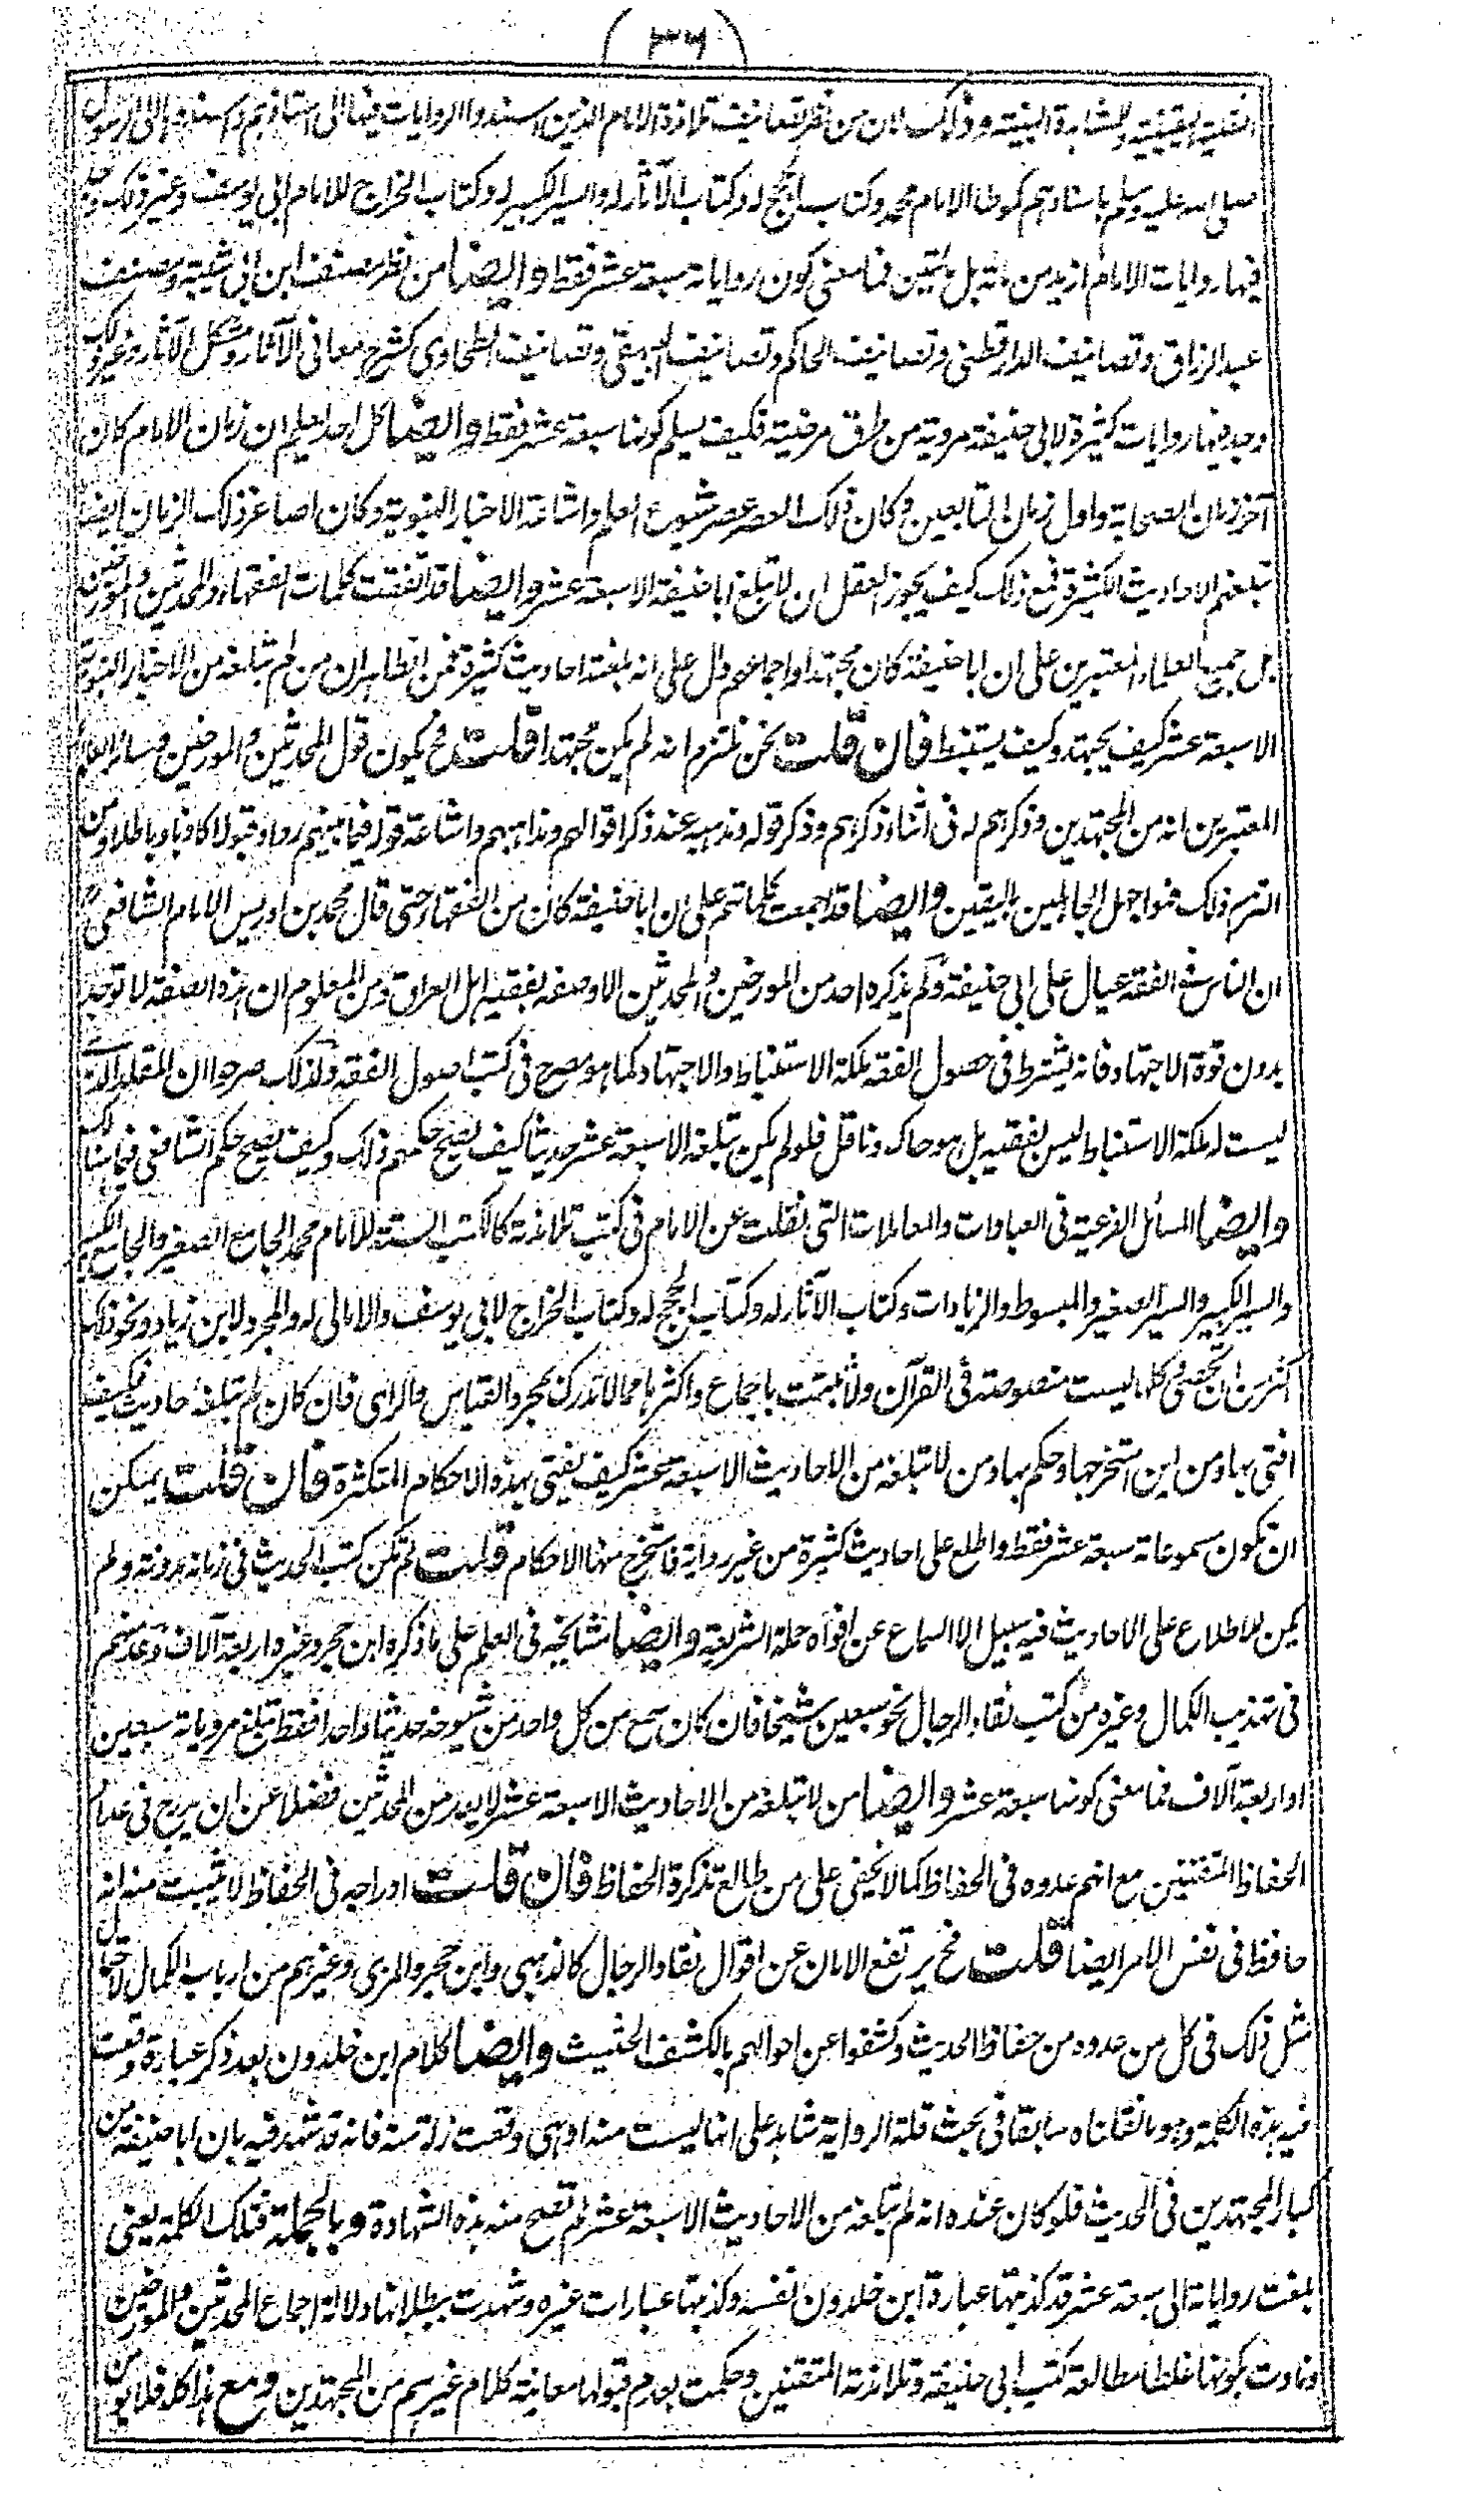 (٣٦)
النقلية اليقينية والمشاهدة البينية وذلك لان من نظر تصانيف تلامذة الامام الذين اسندوا الروايات فيها الى استاذهم واسندوا الى الرسول
صلى الله عليه وسلم باسنادهم كموطا الامام محمد وكتاب الحجج له وكتاب الآثار له والسير الكبير له وكتاب الخراج للامام ابى يوسف وغير ذلك وجد
فيها روايات الامام ازيد من مائة بل مئتين فما معنى كون رواياته سبعة عشر فقط وايضا من نظر مصنف ابن ابى شيبة ومصنف
عبد الرزاق وتصانيف الدارقطنى وتصانيف الحاكم وتصانيف البيهقى وتصانيف الطحاوى كشرح معانى الآثار ومشكل الآثار وغير ذلك
وجد فيها روايات كثيرة لابى حنيفة مروية من طرق مرضية فكيف يسلم كونها سبعة عشر فقط وايضا كل احد يعلم ان زمان الامام كان
آخر زمان الصحابة واول زمان التابعين وكان ذلك العصر عصر شيوع العلم واشاعة الاخبار النبوية وكان اصاغر ذلك الزمان ايضا
تبلغهم الاحاديث الكثيرة فمع ذلك كيف يجوز العقل ان لا تبلغ ابا حنيفة الا سبعة عشر وايضا قد اتفقت كلمات الفقهاء والمحدثين والمورخين
بل جميع العلماء المعتبرين على ان ابا حنيفة كان مجتهدا واجماعهم دال على انه بلغته احاديث كثيرة فمن الظاهر ان من لم تبلغه من الاخبار النبوية
الا سبعة عشر كيف يجتهد وكيف يستنبط فان قلت نحن نلتزم انه لم يكن مجتهدا قلت فح يكون قول المحدثين والمورخين وسائر العلماء
المعتبرين انه من المجتهدين وذكرهم له فى اثناء ذكرهم وذكر قوله ومذهبه عند ذكر اقوالهم ومذاهبهم واشاعة قوله فيما بينهم ردا وقبولا كاذبا وباطلا ومن
التزم ذلك فهو اجهل الجاهلين باليقين وايضا قد اجمعت كلماتهم على ان ابا حنيفة كان من الفقهاء حتى قال محمد بن ادريس الامام الشافعى
ان الناس فى الفقه عيال على ابى حنيفة ولم يذكره احد من المورخين والمحدثين الا وصفه بفقيه اهل العراق ومن المعلوم ان هذه الصفة لا توجد
بدون قوة الاجتهاد فانه يشترط فى حصول الفقه ملكة الاستنباط والاجتهاد كما هو مصرح فى كتب اصول الفقه ولذلك صرحوا ان المقلد الذى
ليست له ملكة الاستنباط ليس بفقيه بل هو حاك وناقل فلو لم يكن تبلغه الا سبعة عشر حديثا كيف يصح حكمهم ذلك وكيف يصح حكم الشافعى فيما هنالك
وايضا المسائل الفرعية فى العبادات والمعاملات التى نقلت عن الامام فى كتب تلامذته كالكتب الستة للامام محمد الجامع الصغير والجامع الكبير
والسير الكبير والسير الصغير والمبسوط والزيادات وكتاب الآثار له وكتاب الحجج له وكتاب الخراج لابى يوسف والامالى له والمجرد لابن زياد ونحو ذلك
اكثر من ان تحصى وكلها ليست منصوصة فى القرآن ولا ثبتت باجماع واكثرها مما لا تدرك بمجرد القياس والراى فان كان لم تبلغه احاديث فكيف
افتى بها ومن اين استخرجها وحكم بها ومن لا تبلغه من الاحاديث الا سبعة عشر كيف يفتى بهذه الاحكام المتكثرة فان قلت يمكن
ان تكون مسموعاته سبعة عشر فقط واطلع على احاديث كثيرة من غير رواية فاستخرج منها الاحكام قلت لم تكن كتب الحديث فى زمانه مدونة ولم
يكن للاطلاع على الاحاديث فيه سبيل الا السماع عن افواه حملة الشريعة وايضا مشايخه فى العلم على ما ذكره ابن حجر وغيره اربعة آلاف وعد منهم
فى تهذيب الكمال وغيره من كتب نقاد الرجال نحو سبعين شيخا فان كان سمع من كل واحد من شيوخه حديثا واحدا فقط تبلغ مروياته سبعين
او اربعة آلاف فما معنى كونها سبعة عشر وايضا من لا تبلغه من الاحاديث الا سبعة عشر لا يعد من المحدثين فضلا عن ان يدرج فى عداد
الحفاظ المتقنين مع انهم عدوه فى الحفاظ كما لا يخفى على من طالع تذكرة الحفاظ فان قلت ادراجه فى الحفاظ لا يثبت منه انه
حافظ فى نفس الامر ايضا قلت فح يرتفع الامان عن اقوال نقاد الرجال كالذهبى وابن حجر والمزى وغيرهم من ارباب الكمال لاحتمال
مثل ذلك فى كل من عدوه من حفاظ الحديث وكشفوا عن احوالهم بالكشف الحثيث وايضا كلام ابن خلدون بعد ذكر عبارة وقعت
فيه هذه الكلمة وهو ما نقلناه سابقا فى بحث قلة الرواية شاهد على انها ليست منه او هى وقعت زلة منه فانه قد شهد فيه بان ابا حنيفة من
كبار المجتهدين فى الحديث فلو كان عنده انه لم تبلغه من الاحاديث الا سبعة عشر لم تصح منه هذه الشهادة وبالجملة فتلك الكلمة يعنى
بلغت رواياته الى سبعة عشر قد كذبتها عبارة ابن خلدون نفسه وكذبتها عبارات غيره وشهدت ببطلانها دلالة اجماع المحدثين والمورخين
ونادت بكونها غلطا مطالعة كتب ابى حنيفة وتلامذته المتقنين وحكمت بعدم قبولها معاينة كلام غيرهم من المجتهدين ومع هذا كله فلا يومن